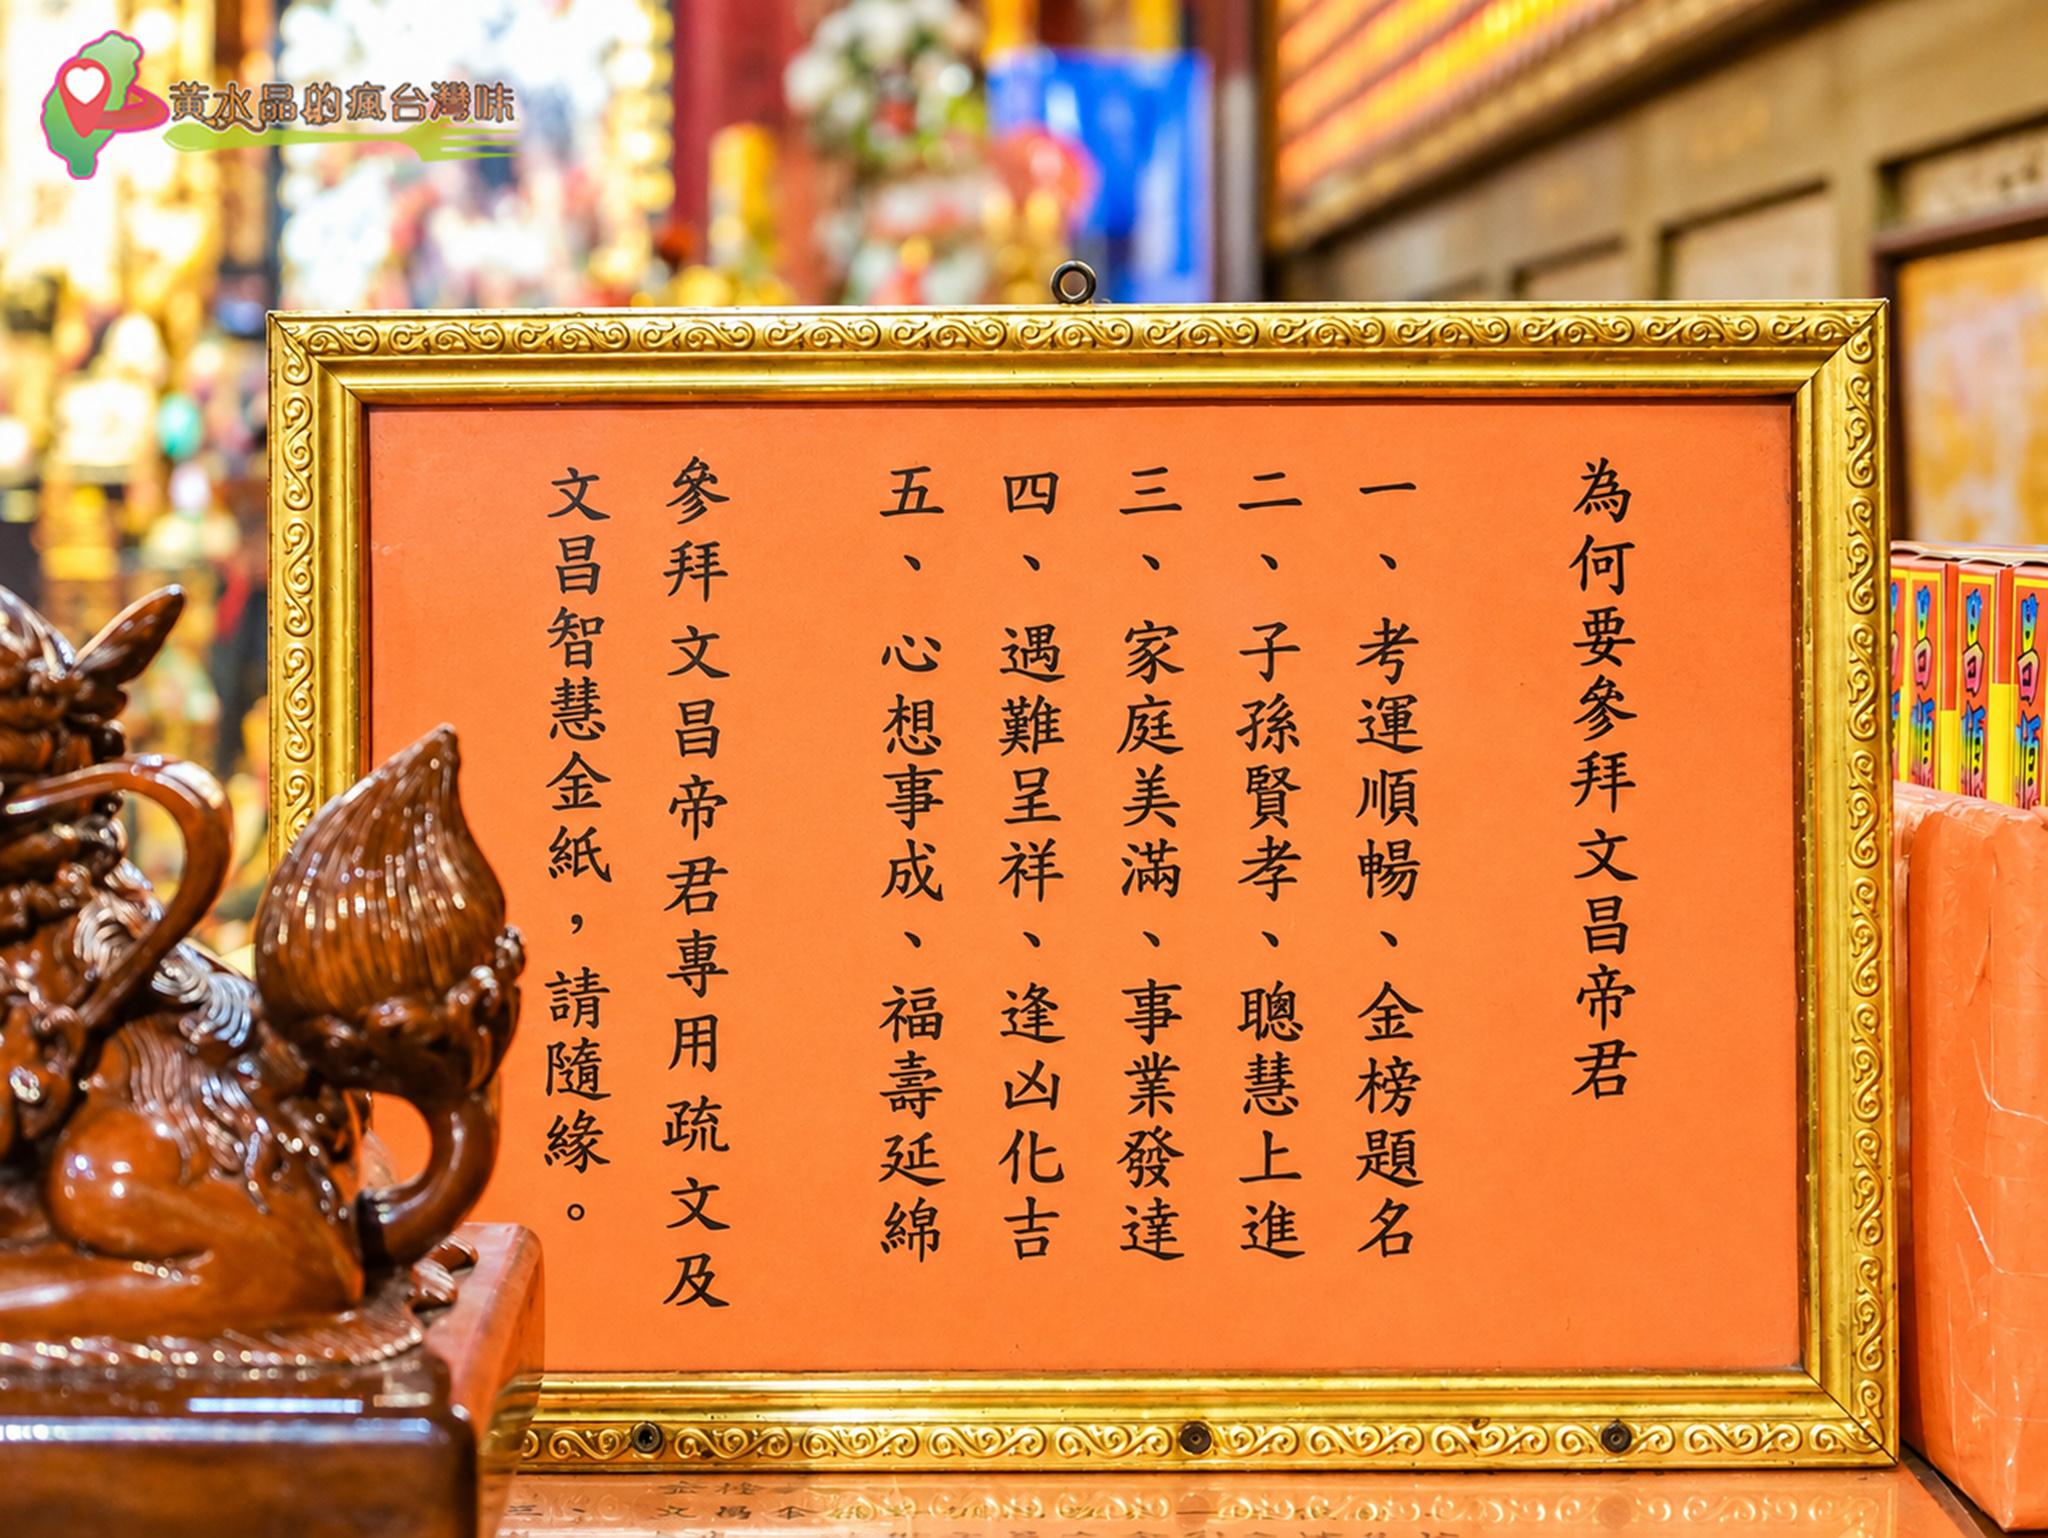 黃水晶的瘋台灣味
為何要參拜文昌帝君
一、考運順暢、金榜題名
二、子孫賢孝、聰慧上進
三、家庭美滿、事業發達
四、遇難呈祥、逢凶化吉
五、心想事成、福壽延綿
參拜文昌帝君專用疏文及
文昌智慧金紙，請隨緣。
昌順
昌順
昌順